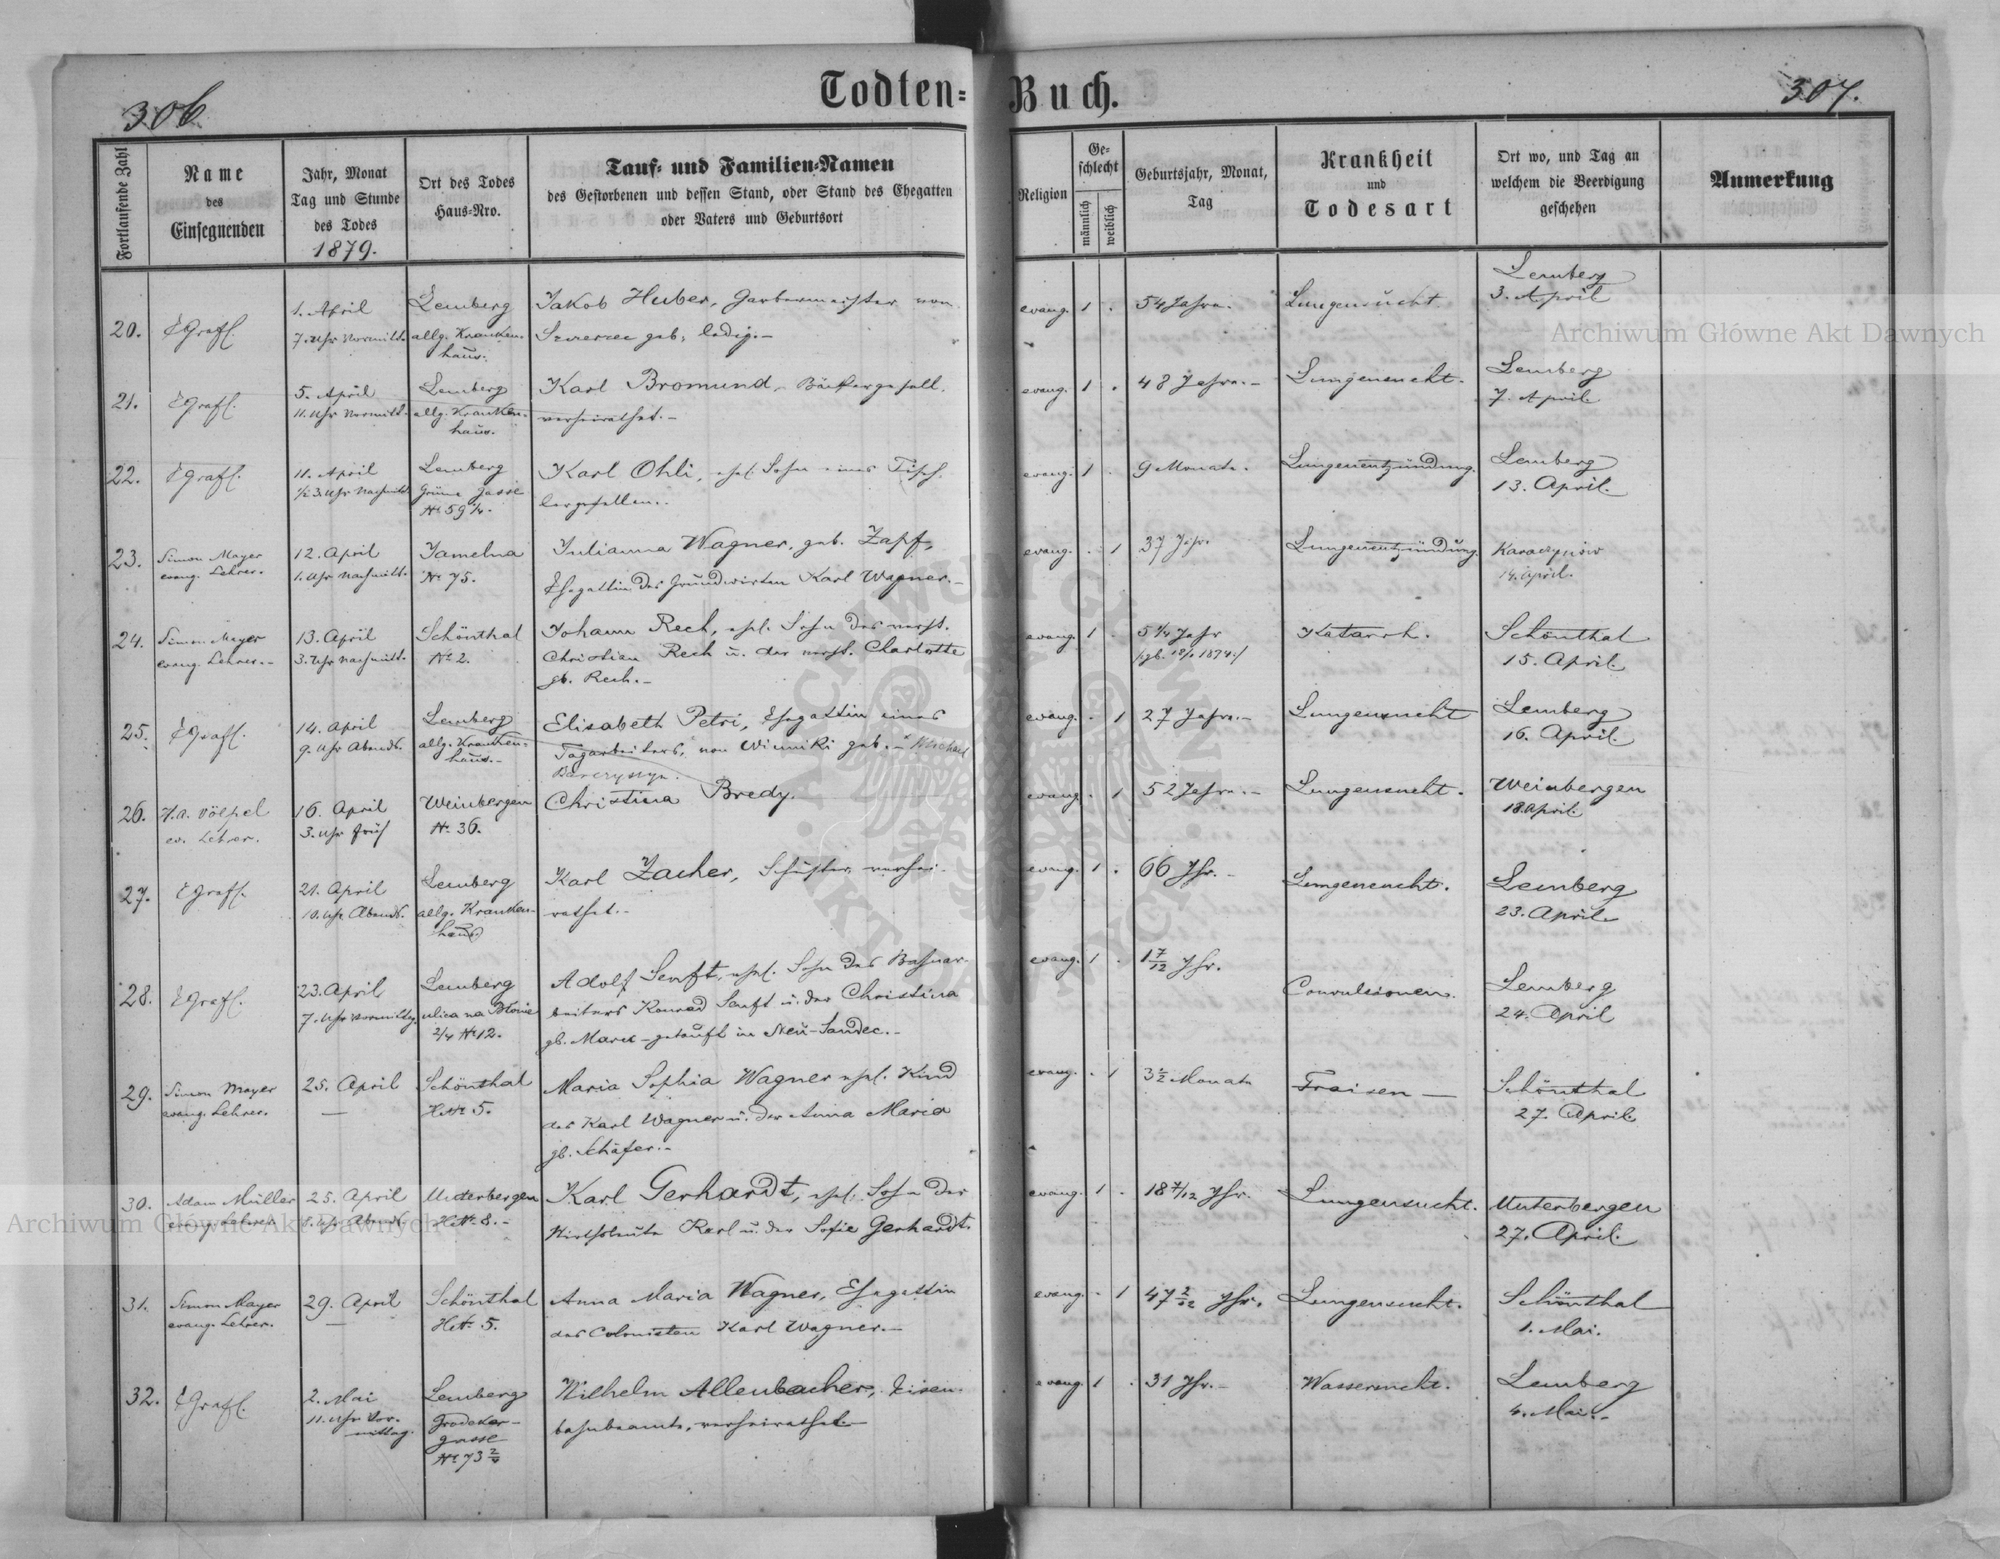 306
Todten-Buch.
307.
Fortlaufende Zahl
Name
des
Einsegnenden
Jahr, Monat
Tag und Stunde
des Todes
1879.
Ort des Todes
Haus-Nro.
Tauf- und Familien-Namen
des Gestorbenen und dessen Stand, oder Stand des Ehegatten
oder Vaters und Geburtsort
Religion
Ge-
schlecht
männlich
weiblich
Geburtsjahr, Monat,
Tag
Krankheit
und
Todesart
Ort wo, und Tag an
welchem die Beerdigung
geschehen
Anmerkung
20.
EGrafl.
1. April
7. Uhr Vormitt.
Lemberg
allg. Kranken-
haus.
Jakob Huber, Gerbermeister von
geb., ledig.-
evang. 1 .
54 Jahre.
Lungensucht
Lemberg
3. April
21.
EGrafl.
5. April
11. Uhr Vormitt.
Lemberg
allg. Kranken-
haus.
Karl Bromund, Bäckergesell.
verheirathet.-
evang. 1 .
48 Jahre.-
Lungensucht.
Lemberg
7. April
22.
EGrafl.
11. April
1/2 3. Uhr Nachmitt.
Lemberg
Grüne Gasse
No 59 1/4.
Karl Ohli, ehel. Sohn eines Tisch-
lergesellen.
evang. 1
9 Monate.
Lungenentzündung.
Lemberg
13. April.
23.
Simon Mayer
evang. Lehrer.
12. April
1. Uhr Nachmitt.
Jamelna
No 75.
Julianna Wagner, geb. Zapf,
Ehegattin des Grundwirten Karl Wagner.-
evang. . 1
37 Jhr.
Lungenentzündung.
Karaczynów
14. April.
24.
Simon Mayer
evang. Lehrer.-
13. April
3. Uhr Nachmitt.
Schönthal
No 2.
Johann Rech, ehel. Sohn des verst.
Christian Rech u. der verst. Charlotte
gb. Rech.-
evang. 1 .
5 1/4 Jahr
1874
Katarrh.
Schönthal
15. April.
25.
EGrafl.
14. April
9. Uhr Abends.
Lemberg
allg. Kranken-
haus.-
Elisabeth Petri, Ehegattin eines
Tagarbeiters, von Winniki geb.- Michael
evang. . 1
27 Jahre.-
Lungensucht
Lemberg
16. April.
26.
H.A. Völpel
ev. Lehrer.
16. April
3. Uhr Früh
Weinbergen
No 36.
Christina Bredy.
evang. . 1
52 Jahre.-
Lungensucht.
Weinbergen
18. April.
27.
EGrafl.
21. April
10. Uhr Abends.
Lemberg
allg. Kranken-
haus
Karl Zacher, Schuster, verhei-
rathet.-
evang. 1 .
66 Jhr.-
Lungensucht.
Lemberg
23. April
28.
EGrafl.
23. April
7. Uhr Vormittg.
Lemberg
ulica na Błonie
2/4 No 12.
Adolf Senft, ehel. Sohn des Bahnar-
beiters Konrad Senft u. der Christina
gb. Marx - getauft in Neu-Sandec.-
evang. 1 .
1 7/12 Jhr.
Convulsionen.
Lemberg
24. April
29.
Simon Mayer
evang. Lehrer.
25. April
—
Schönthal
HNo 5.
Maria Sophia Wagner ehel. Kind
des Karl Wagner u. der Anna Maria
gb. Schäfer.-
evang. . 1
3 1/2 Monate
Fraisen —
Schönthal
27. April.
30.
Adam Müller
evang. Lehrer
25. April
8. Uhr Abends
Unterbergen
HNo 8.-
Karl Gerhardt, ehel. Sohn der
Wirthsleute Karl u. der Sofie Gerhardt.
evang. 1 .
18 7/12 Jhr.
Lungensucht.
Unterbergen
27. April.
31.
Simon Mayer
evang. Lehrer.
29. April
—
Schönthal
HNo 5.
Anna Maria Wagner, Ehegattin
des Colonisten Karl Wagner.-
evang. . 1
47 2/12 Jhr.
Lungensucht.
Schönthal
1. Mai.
32.
EGrafl.
2. Mai
11. Uhr Vor-
mittag.
Lemberg
Grodeker-
gasse
No 73 2/4
Wilhelm Allenbacher, Eisen-
bahnbeamte, verheirathet.-
evang. 1 .
31 Jhr.-
Wassersucht.
Lemberg
4. Mai.-
Archiwum Główne Akt Dawnych
Archiwum Główne Akt Dawnych
ARCHIWUM GŁÓWNE
AKT DAWNYCH